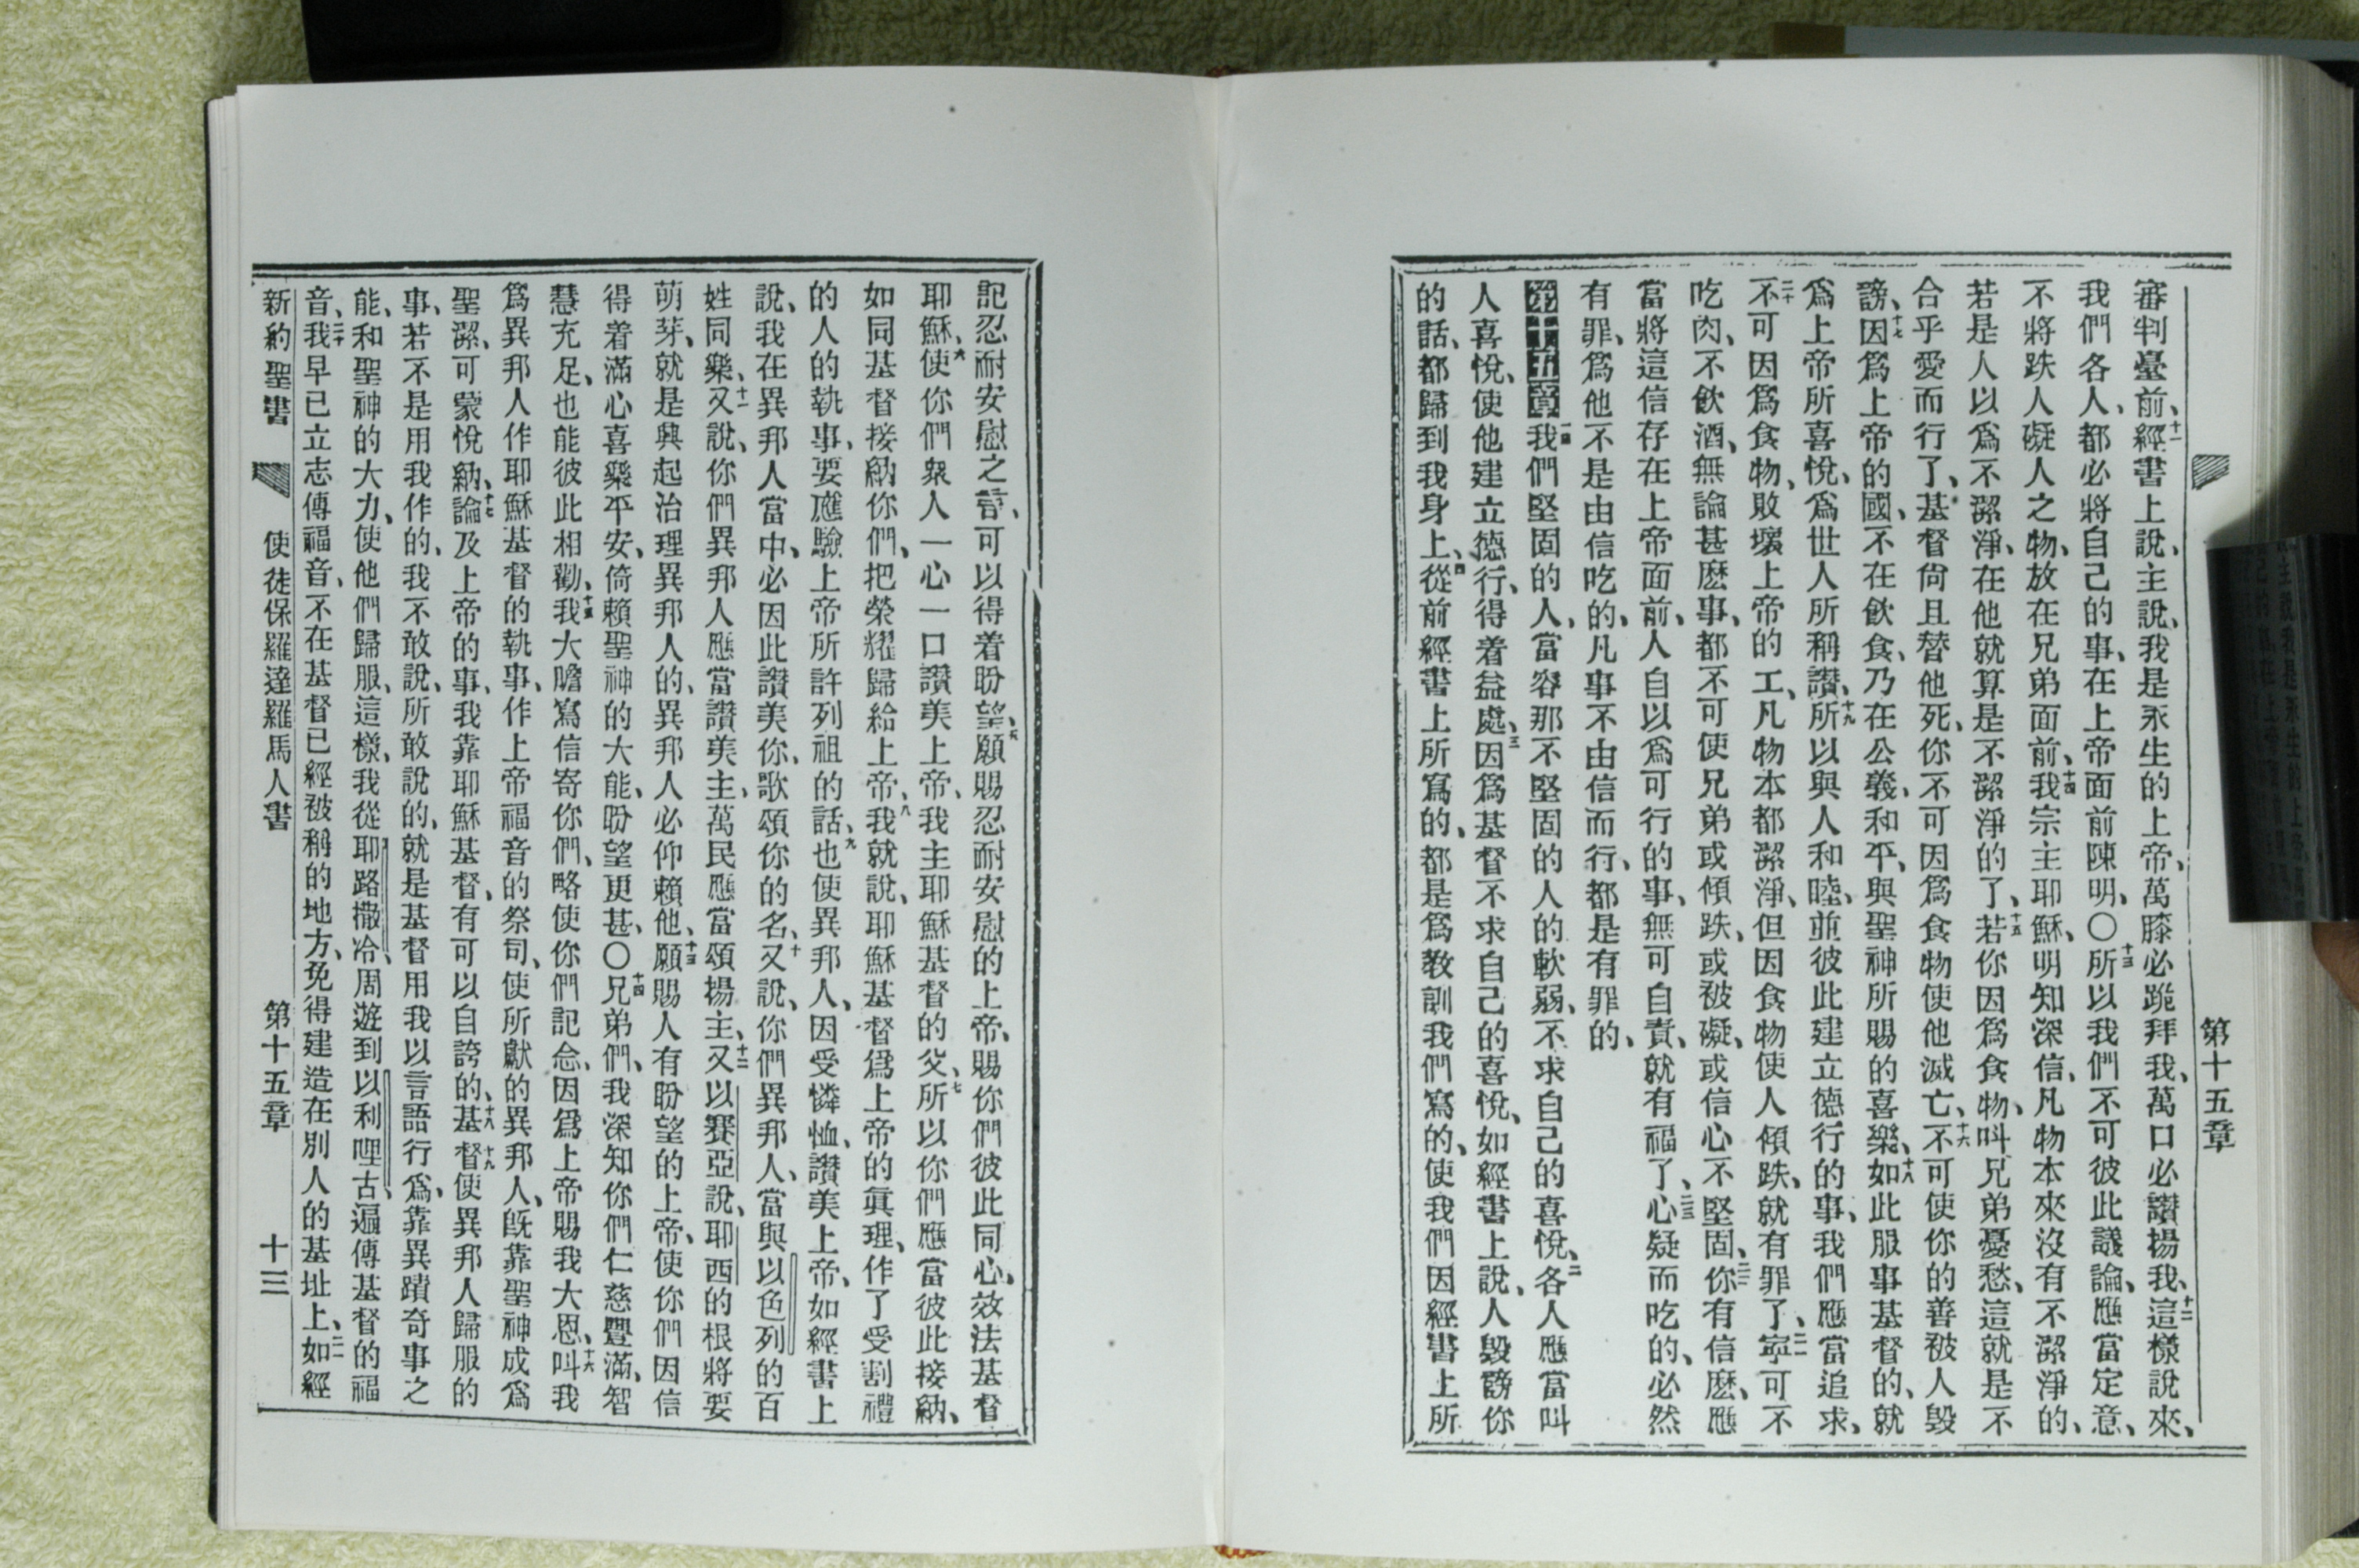 第十五章
審判臺前、十一經書上說、主說、我是永生的上帝、萬膝必跪拜我、萬口必讚揚我、十二這樣說來、
我們各人、都必將自己的事、在上帝面前陳明、〇十三所以我們不可彼此議論、應當定意、
不將跌人礙人之物、放在兄弟面前、十四我宗主耶穌、明知深信、凡物本來沒有不潔淨的、
若是人以爲不潔淨、在他就算是不潔淨的了、十五若你因爲食物、叫兄弟憂愁、這就是不
合乎愛而行了、基督尙且替他死、你不可因爲食物使他滅亡、十六不可使你的善被人毀
謗、十七因爲上帝的國、不在飮食、乃在公義、和平、與聖神所賜的喜樂、十八如此服事基督的、就
爲上帝所喜悅、爲世人所稱讚、十九所以與人和睦、並彼此建立德行的事、我們應當追求、
二十不可因爲食物、敗壞上帝的工、凡物本都潔淨、但因食物使人傾跌、就有罪了、二一寧可不
吃肉、不飮酒、無論甚麽事、都不可使兄弟或傾跌、或被礙、或信心不堅固、二二你有信麽、應
當將這信存在上帝面前、人自以爲可行的事、無可自責、就有福了、二三心疑而吃的、必然
有罪、爲他不是由信吃的、凡事不由信而行、都是有罪的、
第十五章一我們堅固的人、當容那不堅固的人的軟弱、不求自己的喜悅、二各人應當叫
人喜悅、使他建立德行、得着益處、三因爲基督不求自己的喜悅、如經書上說、人毀謗你
的話、都歸到我身上、四從前經書上所寫的、都是爲敎訓我們寫的、使我們因經書上所
記忍耐安慰之言、可以得着盼望、五願賜忍耐安慰的上帝、賜你們彼此同心、效法基督
耶穌、六使你們衆人一心一口讚美上帝、我主耶穌基督的父、七所以你們應當彼此接納、
如同基督接納你們、把榮耀歸給上帝、八我就說、耶穌基督爲上帝的眞理、作了受割禮
的人的執事、要應驗上帝所許列祖的話、九也使異邦人、因受憐恤、讚美上帝、如經書上
說、我在異邦人當中、必因此讚美你、歌頌你的名、十又說、你們異邦人、當與以色列的百
姓同樂、十一又說、你們異邦人應當讚美主、萬民應當頌揚主、十二又以賽亞說、耶西的根將要
萌芽、就是興起治理異邦人的、異邦人必仰賴他、十三願賜人有盼望的上帝、使你們因信
得着滿心喜樂平安、倚賴聖神的大能、盼望更甚、〇十四兄弟們、我深知你們仁慈豐滿、智
慧充足、也能彼此相勸、十五我大膽寫信寄你們、略使你們記念、因爲上帝賜我大恩、十六叫我
爲異邦人作耶穌基督的執事、作上帝福音的祭司、使所獻的異邦人、旣靠聖神成爲
聖潔、可蒙悅納、十七論及上帝的事、我靠耶穌基督、有可以自誇的、十八基督十九使異邦人歸服的
事、若不是用我作的、我不敢說、所敢說的、就是基督用我以言語行爲、靠異蹟奇事之
能、和聖神的大力、使他們歸服、這樣、我從耶路撒冷、周遊到以利哩古、遍傳基督的福
音、二十我早已立志傳福音、不在基督已經被稱的地方、免得建造在別人的基址上、二一如經
新約聖書 使徒保羅達羅馬人書 第十五章 十三